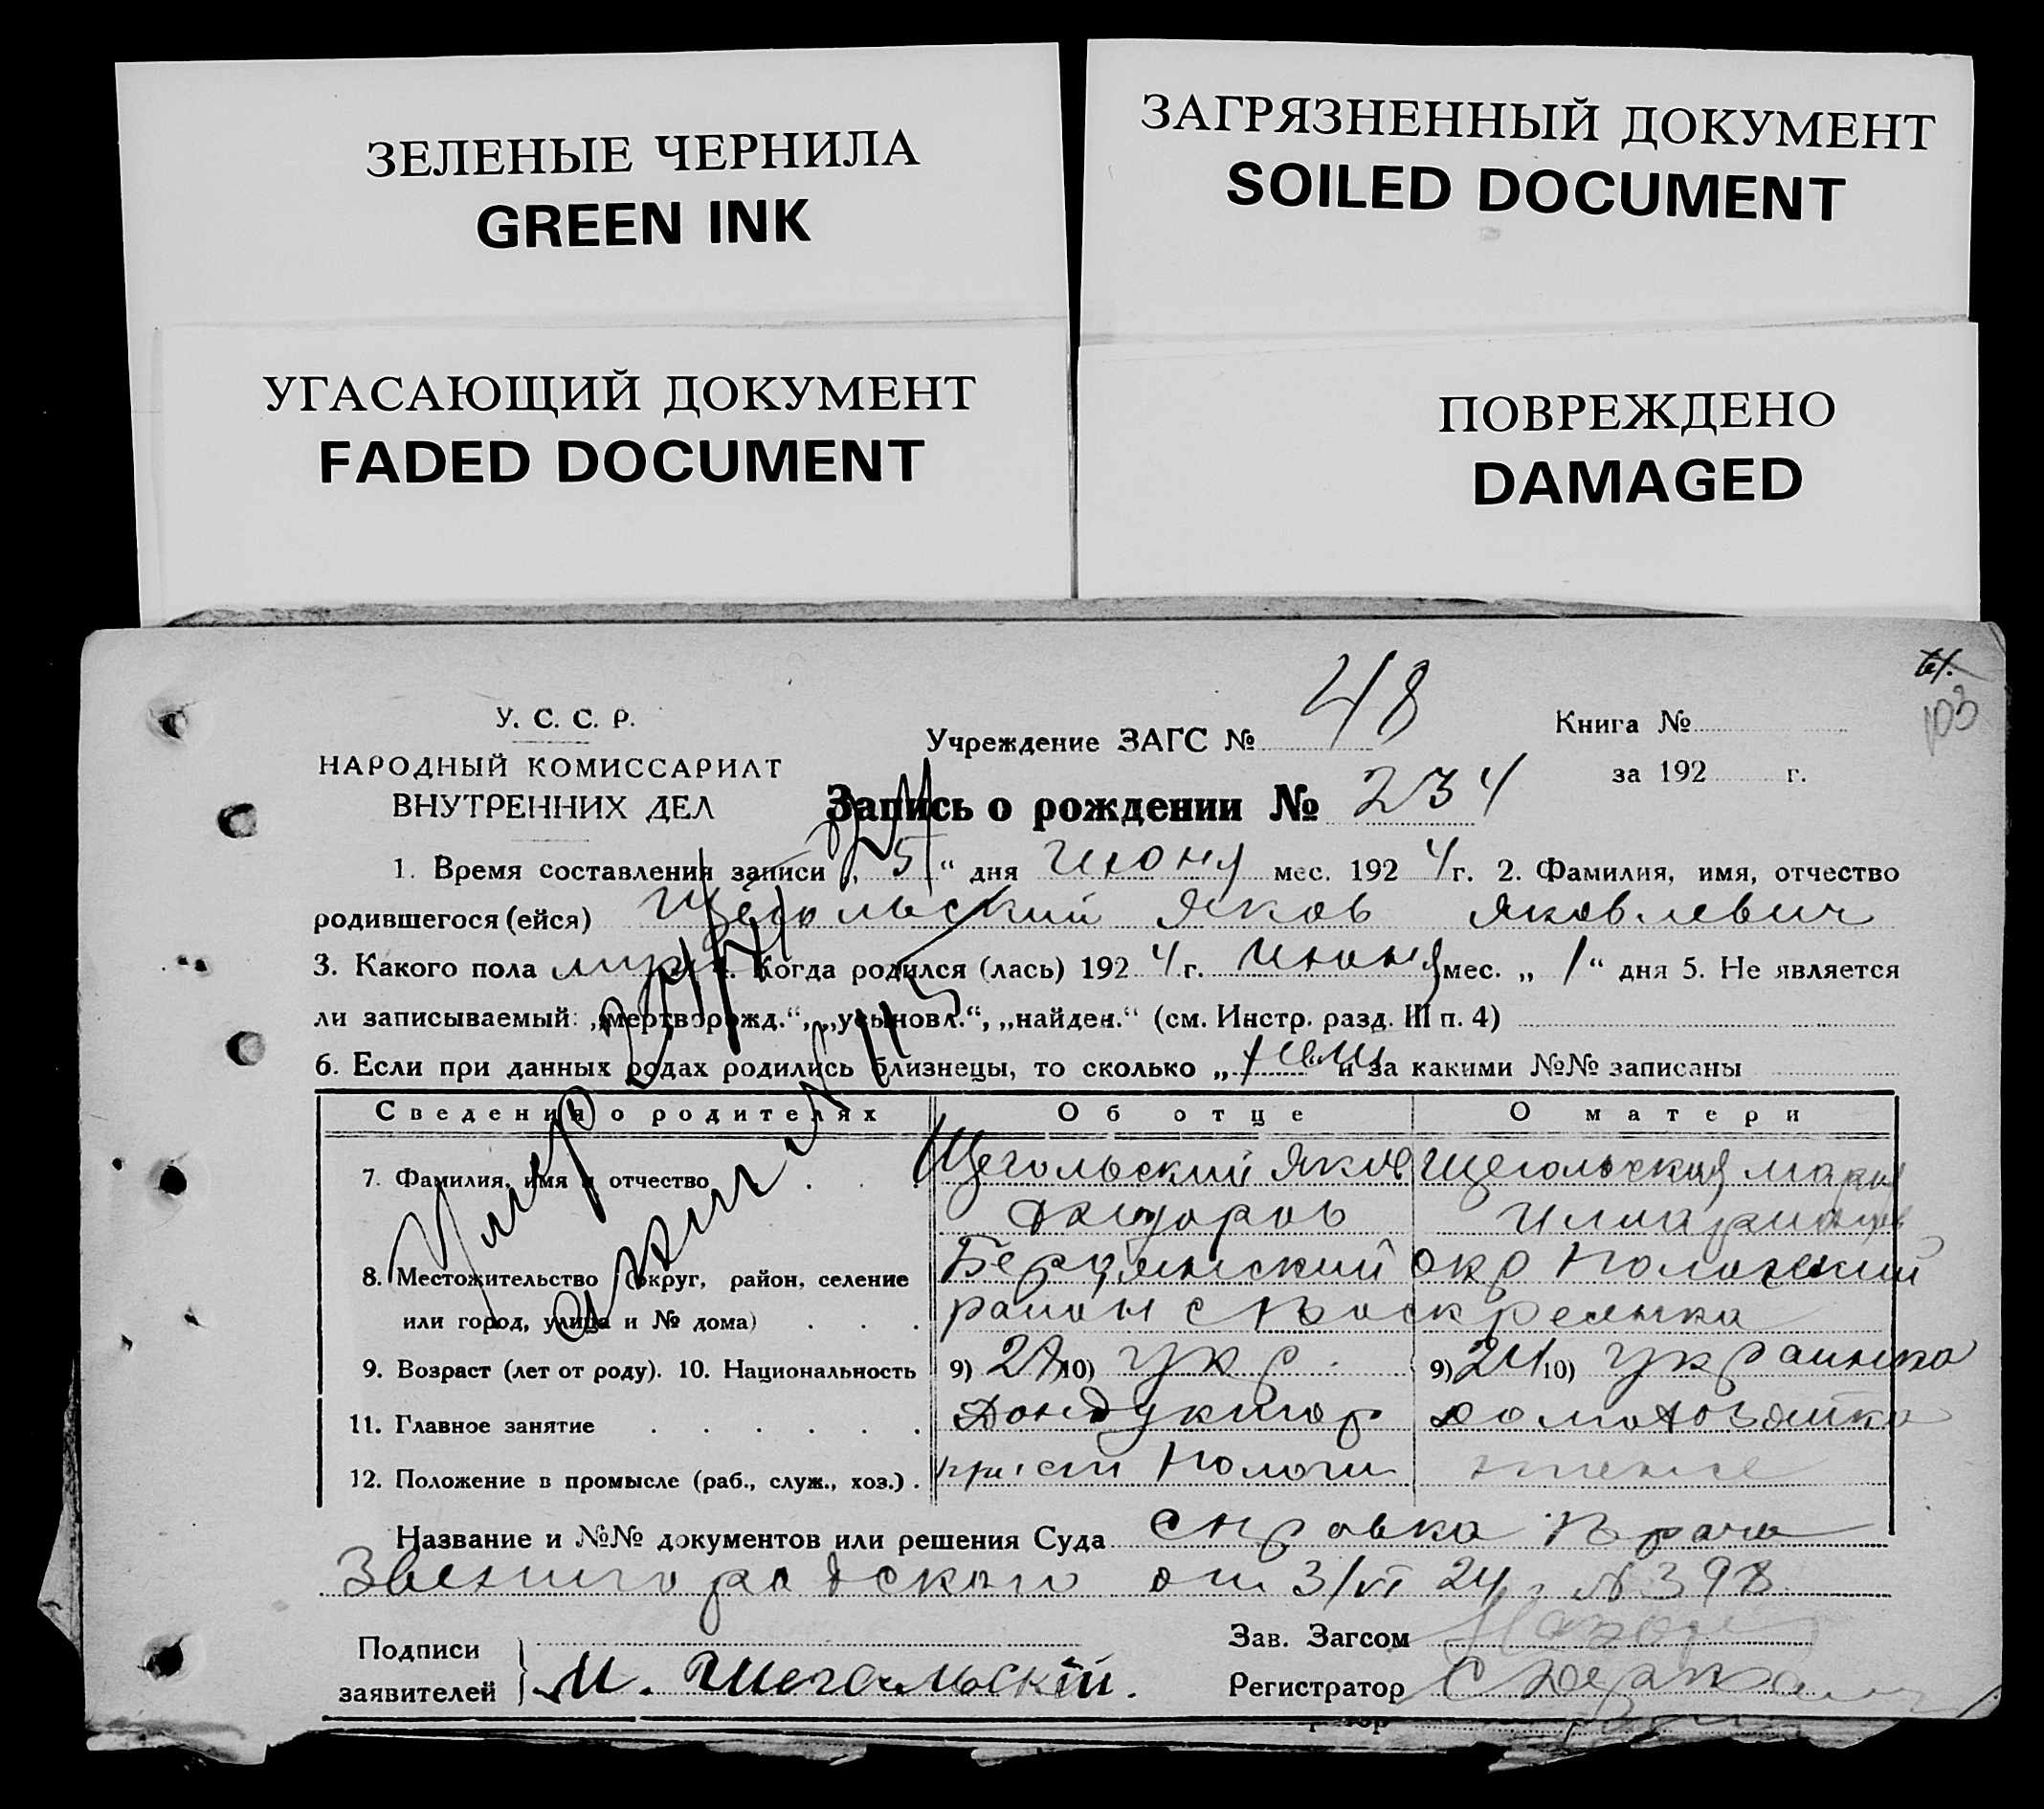 ЗЕЛЕНЫЕ ЧЕРНИЛА
GREEN INK
ЗАГРЯЗНЕННЫЙ ДОКУМЕНТ
SOILED DOCUMENT
УГАСАЮЩИЙ ДОКУМЕНТ
FADED DOCUMENT
ПОВРЕЖДЕНО
DAMAGED
103
У. С. С. Р.
НАРОДНЫЙ КОМИССАРИАТ
ВНУТРЕННИХ ДЕЛ
Учреждение ЗАГС № 48
Книга №
за 192 г.
Запись о рождении № 234
1. Время составления записи „ 5 “ дня июня мес. 192 4 г. 2. Фамилия, имя, отчество
родившегося (ейся) Щегольский Яков Яковлевич
3. Какого пола муж 4. Когда родился (лась) 192 4 г. июня мес. „ 1 “ дня 5. Не является
ли записываемый: „мертворожд.“, „усыновл.“, „найден.“ (см. Инстр. разд. III п. 4)
6. Если при данных родах родились близнецы, то сколько „ “ и за какими №№ записаны
Сведения о родителях Об отце О матери
7. Фамилия, имя и отчество Щегольский Яков Щегольская Мария
8. Местожительство (округ, район, селение Бердянский окр Пологский
или город, улица и № дома) район с Воскресенка
9. Возраст (лет от роду). 10. Национальность 9) 10) укр. 9) 24 10) украинка
11. Главное занятие Кондуктор домохозяйка
12. Положение в промысле (раб., служ., хоз.) ст Пологи
Название и №№ документов или решения Суда Справка Врача
Звенигородского от 3/VI 24 г № 398
Подписи
заявителей М. Щегольскій.
Зав. Загсом
Регистратор
Умер